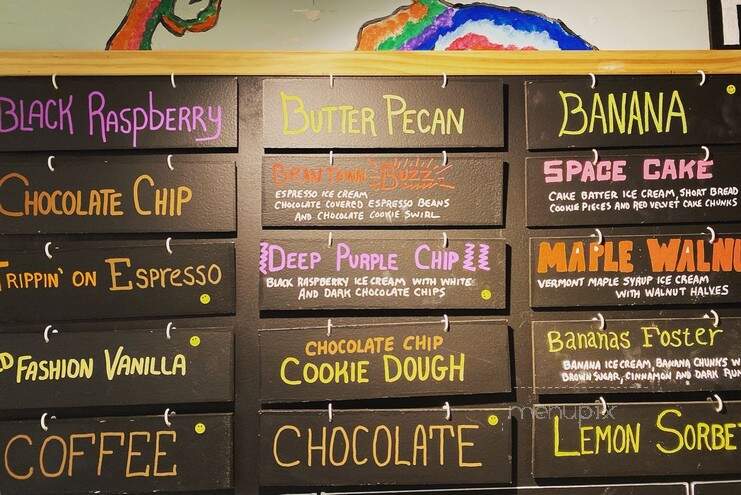 BLACK RASPBERRY
CHOCOLATE CHIP
TRIPPIN' ON ESPRESSO
FASHION VANILLA
COFFEE
BUTTER PECAN
BUZZ
ESPRESSO ICE CREAM
CHOCOLATE COVERED ESPRESSO BEANS
AND CHOCOLATE COOKIE SWIRL
DEEP PURPLE CHIP
BLACK RASPBERRY ICE CREAM WITH WHITE
AND DARK CHOCOLATE CHIPS
CHOCOLATE CHIP
COOKIE DOUGH
CHOCOLATE
BANANA
SPACE CAKE
CAKE BATTER ICE CREAM, SHORT BREAD
COOKIE PIECES AND RED VELVET CAKE CHUNKS
MAPLE WALNU
VERMONT MAPLE SYRUP ICE CREAM
WITH WALNUT HALVES
Bananas Foster
BANANA ICE CREAM, BANANA CHUNKS W
BROWN SUGAR, CINNAMON AND DARK RUM
LEMON SORBE
menupix